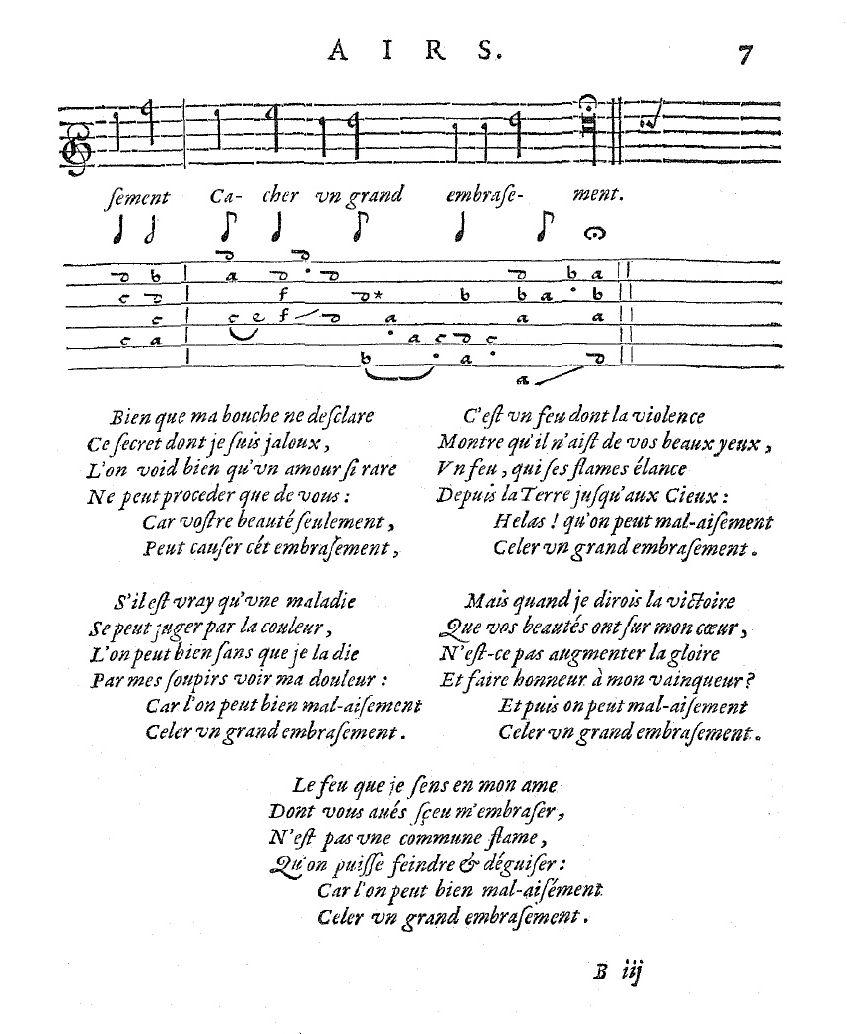 AIRS. 7
ſement Ca- cher vn grand embraſe- ment.
Bien que ma bouche ne deſclare
Ce ſecret dont je ſuis jaloux,
L'on void bien qu'vn amour ſi rare
Ne peut proceder que de vous :
Car voſtre beauté ſeulement,
Peut cauſer cét embraſement,
C'eſt vn feu dont la violence
Montre qu'il n'aiſt de vos beaux yeux,
Vn feu, qui ſes flames élance
Depuis la Terre juſqu'aux Cieux :
Helas ! qu'on peut mal-aiſement
Celer vn grand embraſement.
S'il eſt vray qu'vne maladie
Se peut juger par la couleur,
L'on peut bien ſans que je la die
Par mes ſoupirs voir ma douleur :
Car l'on peut bien mal-aiſement
Celer vn grand embraſement.
Mais quand je dirois la victoire
Que vos beautés ont ſur mon cœur,
N'eſt-ce pas augmenter la gloire
Et faire honneur à mon vainqueur?
Et puis on peut mal-aiſement
Celer vn grand embraſement.
Le feu que je ſens en mon ame
Dont vous aués ſçeu m'embraſer,
N'eſt pas vne commune flame,
Qu'on puiſſe feindre & déguiſer :
Car l'on peut bien mal-aiſément
Celer vn grand embraſement.
B iij